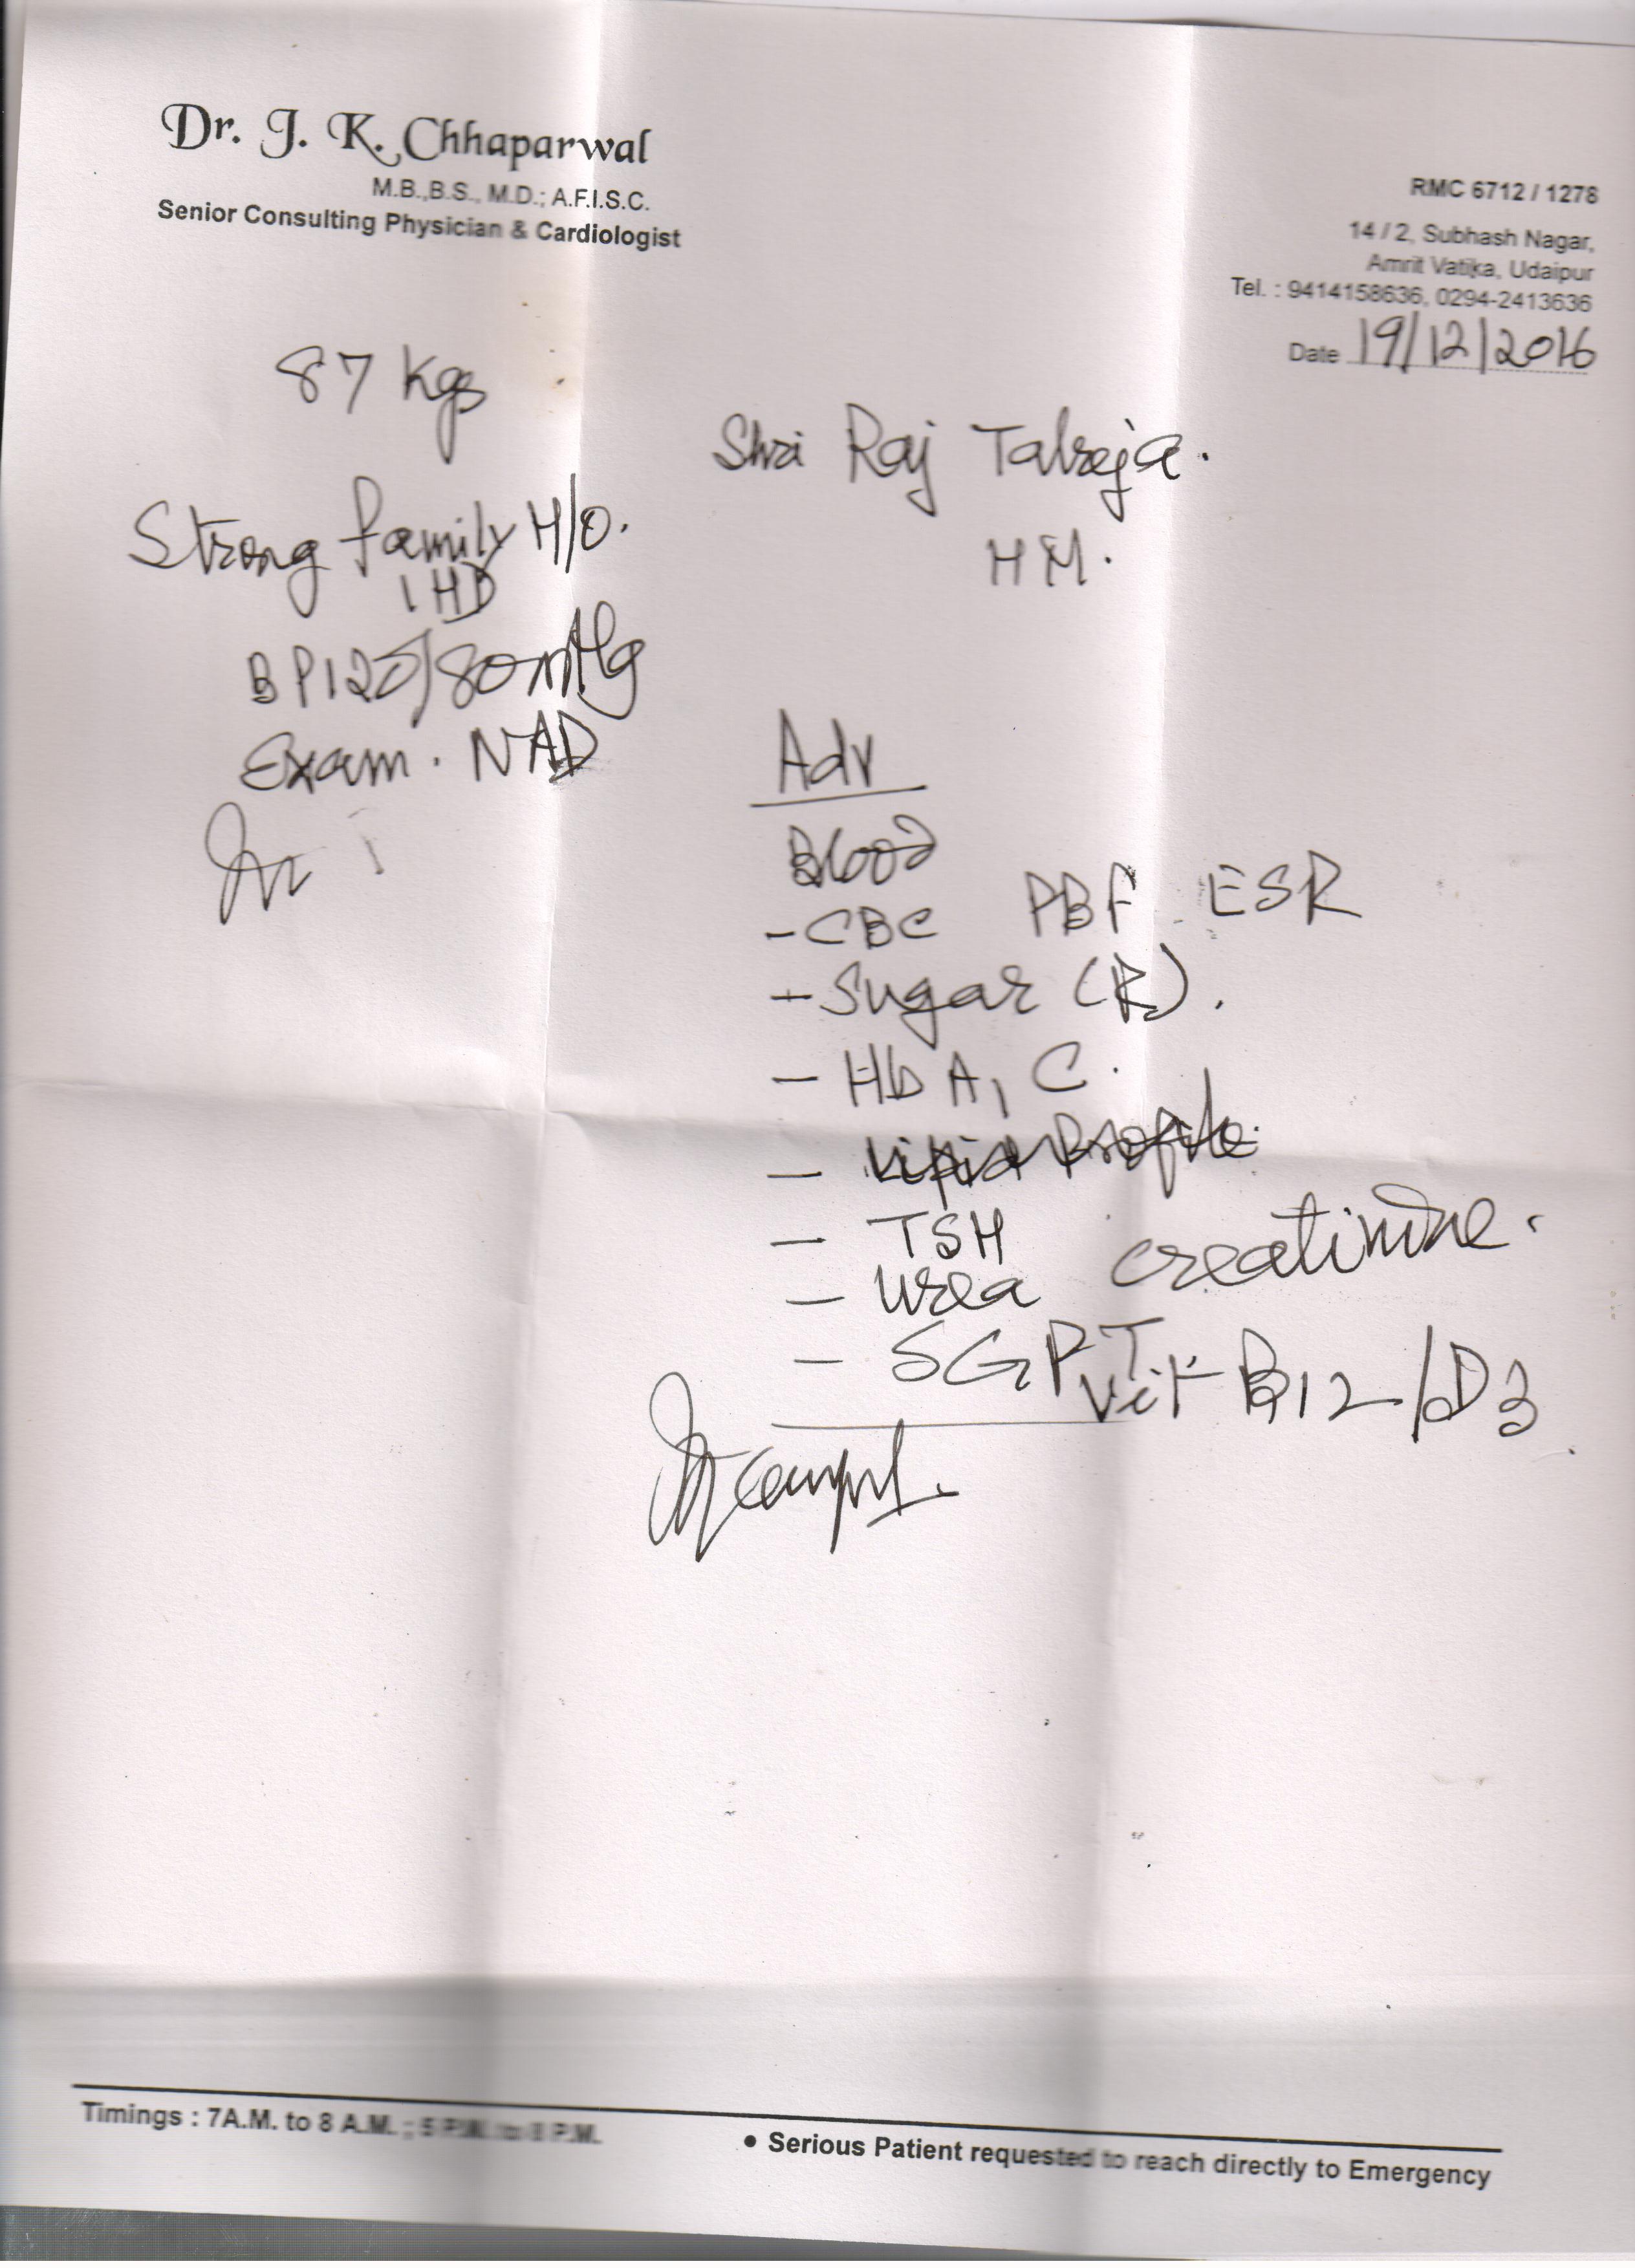 Dr. J. K. Chhaparwal
M.B.,B.S., M.D.; A.F.I.S.C.
Senior Consulting Physician & Cardiologist
RMC 6712 / 1278
14 / 2, Subhash Nagar,
Amrit Vatika, Udaipur
Tel. : 9414158636, 0294-2413636
Date 19/12/2016
87 Kgs
Shri Raj Talreja.
HM.
Strong family H/O.
IHD
BP 120/80 mmHg
Exam. NAD
Adv
Blood
- CBC PBF ESR
- Sugar (R).
- HbA1C.
- Lipid Profile.
- TSH
- Urea creatinine.
- SGPT
Vit B12/D3
Timings : 7A.M. to 8 A.M. ; 5 P.M. to P.M.
• Serious Patient requested to reach directly to Emergency